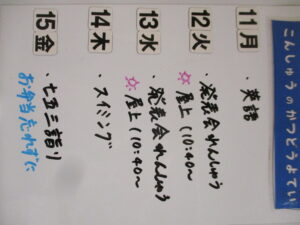 こんしゅうのかつどうよてい
11 月
・英語
12 火
・発表会れんしゅう
屋上（10:40〜
13 水
・発表会れんしゅう
屋上（10:40〜
14 木
・スイミング
15 金
・七五三詣り
お弁当忘れずに